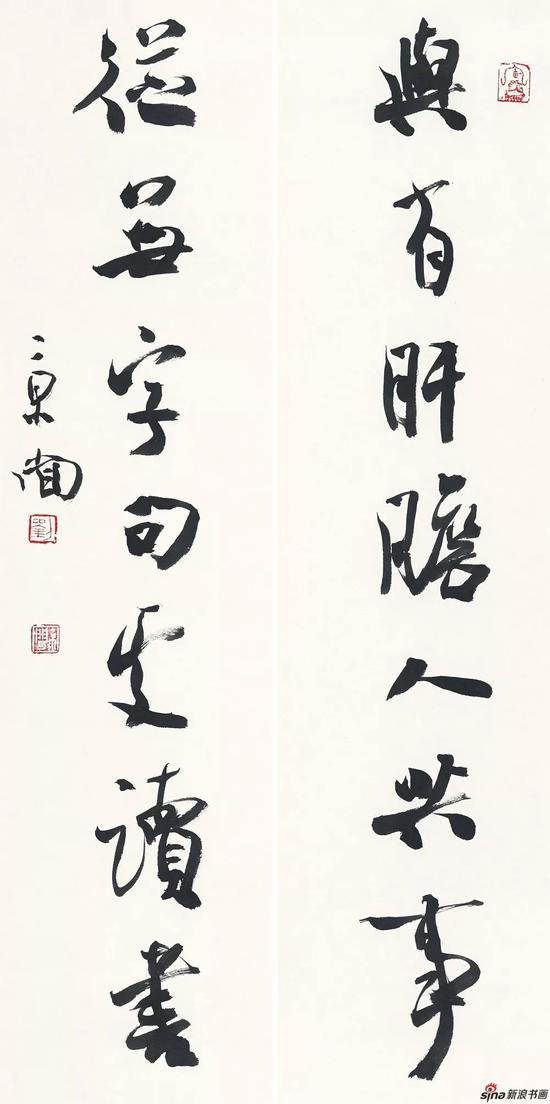 與有肝膽人共事
從無字句處讀書
劉
sina新浪书画